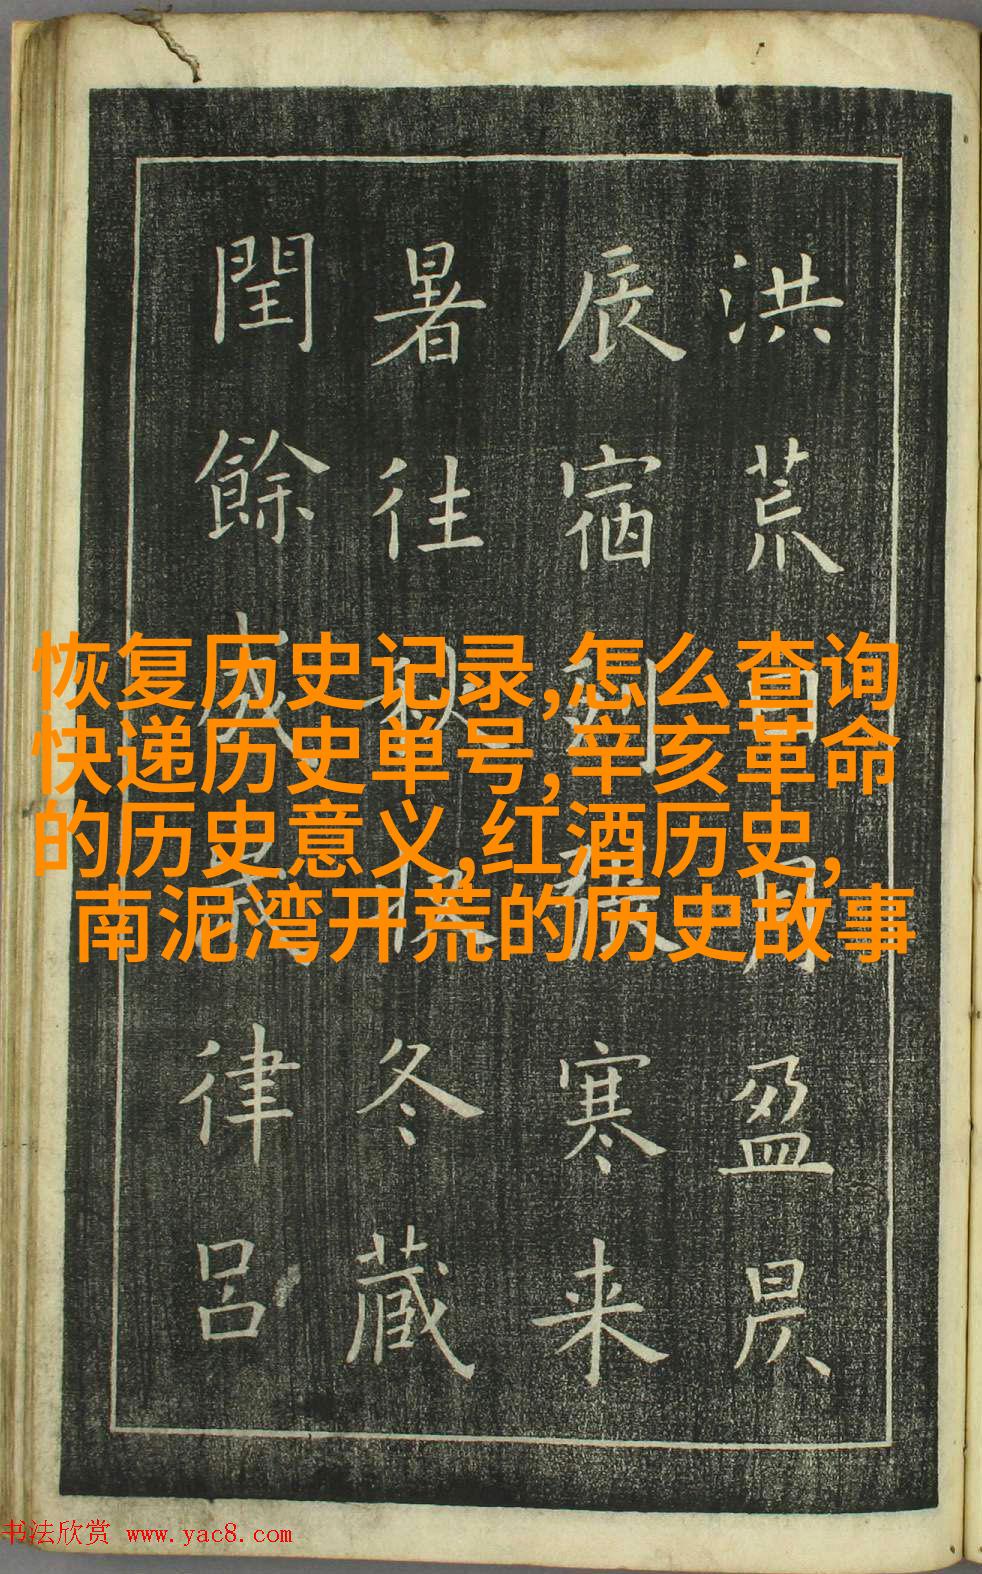 洪荒日月盈昃
辰宿列張寒来
暑往秋收冬藏
閏餘成歲律呂
恢复历史记录,怎么查询
快递历史单号,辛亥革命
的历史意义,红酒历史,
南泥湾开荒的历史故事
书法欣赏 www.yac8.com